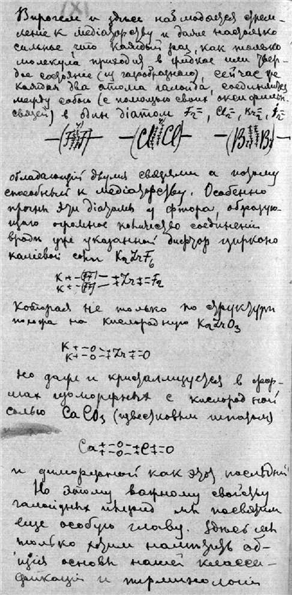 (IX)
Впрочем и здесь наблюдается стрем-
ление к медиаэрезу и даже настолько
сильное что каждый раз, как только
молекула приходит в жидкое или твер-
дое состояние (из газообразного), сейчас же
каждая два атома галоида, соединяясь
между собою (с помощью своих
связей) в один диатом F₂=, Cl₂=, Br₂=,
—(F F)— —(Cl Cl)— —(B B)—
обладающий двумя связями а потому
способный к медиаэрезу. Особенно
прочны эти диатомы у фтора, образую-
щего огромное количество соединений
вроде уже указанной фтор цирконо
калиевой соли K₂ZrF₆
которая не только по структуре
похожа на кислородную K₂ZrO₃
K+−O−
K+−O− +Zr+=O
но даже и кристаллизуется в фор-
мах изоморфных с кислородной
солью CaCO₃ (известковым шпатом)
Ca+−O− +C+=O
и диморфной как этот последний
Но этому важному свойству
галоидных мы посвятим
еще особую главу. Здесь мы
только хотим наметить об-
щие основы нашей класси-
фикации и терминологии